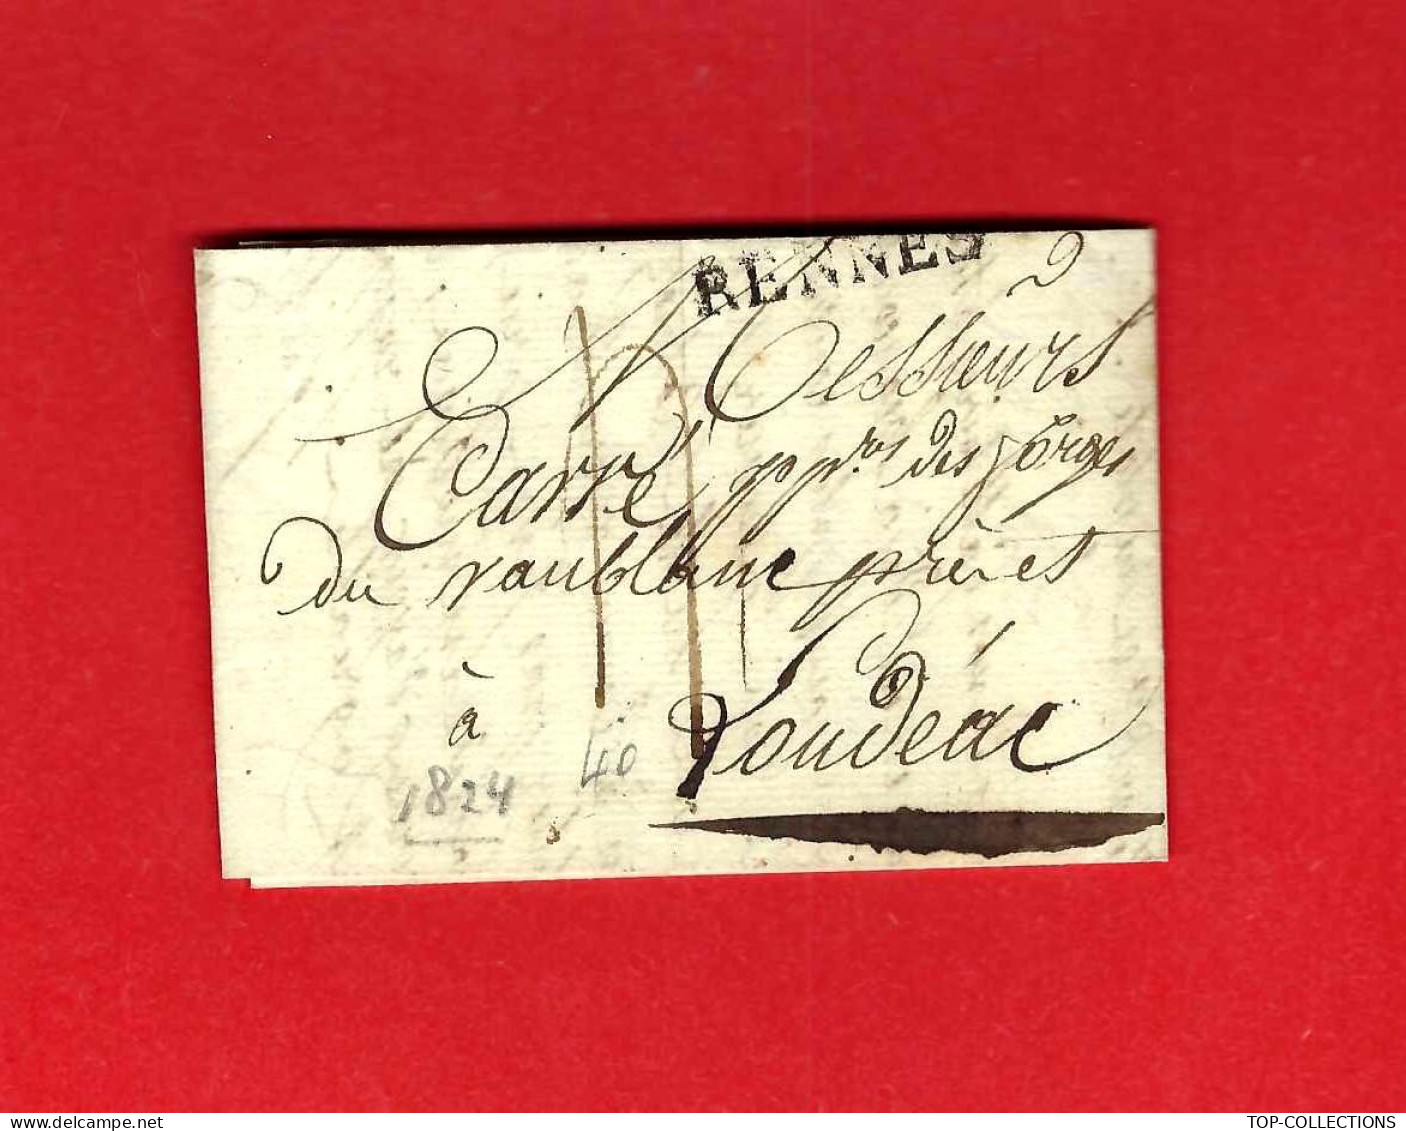 RENNES
Messieurs
Carré pp.res des forges
du vaublanc près et
à Loudéac
1824
40
TOP-COLLECTIONS